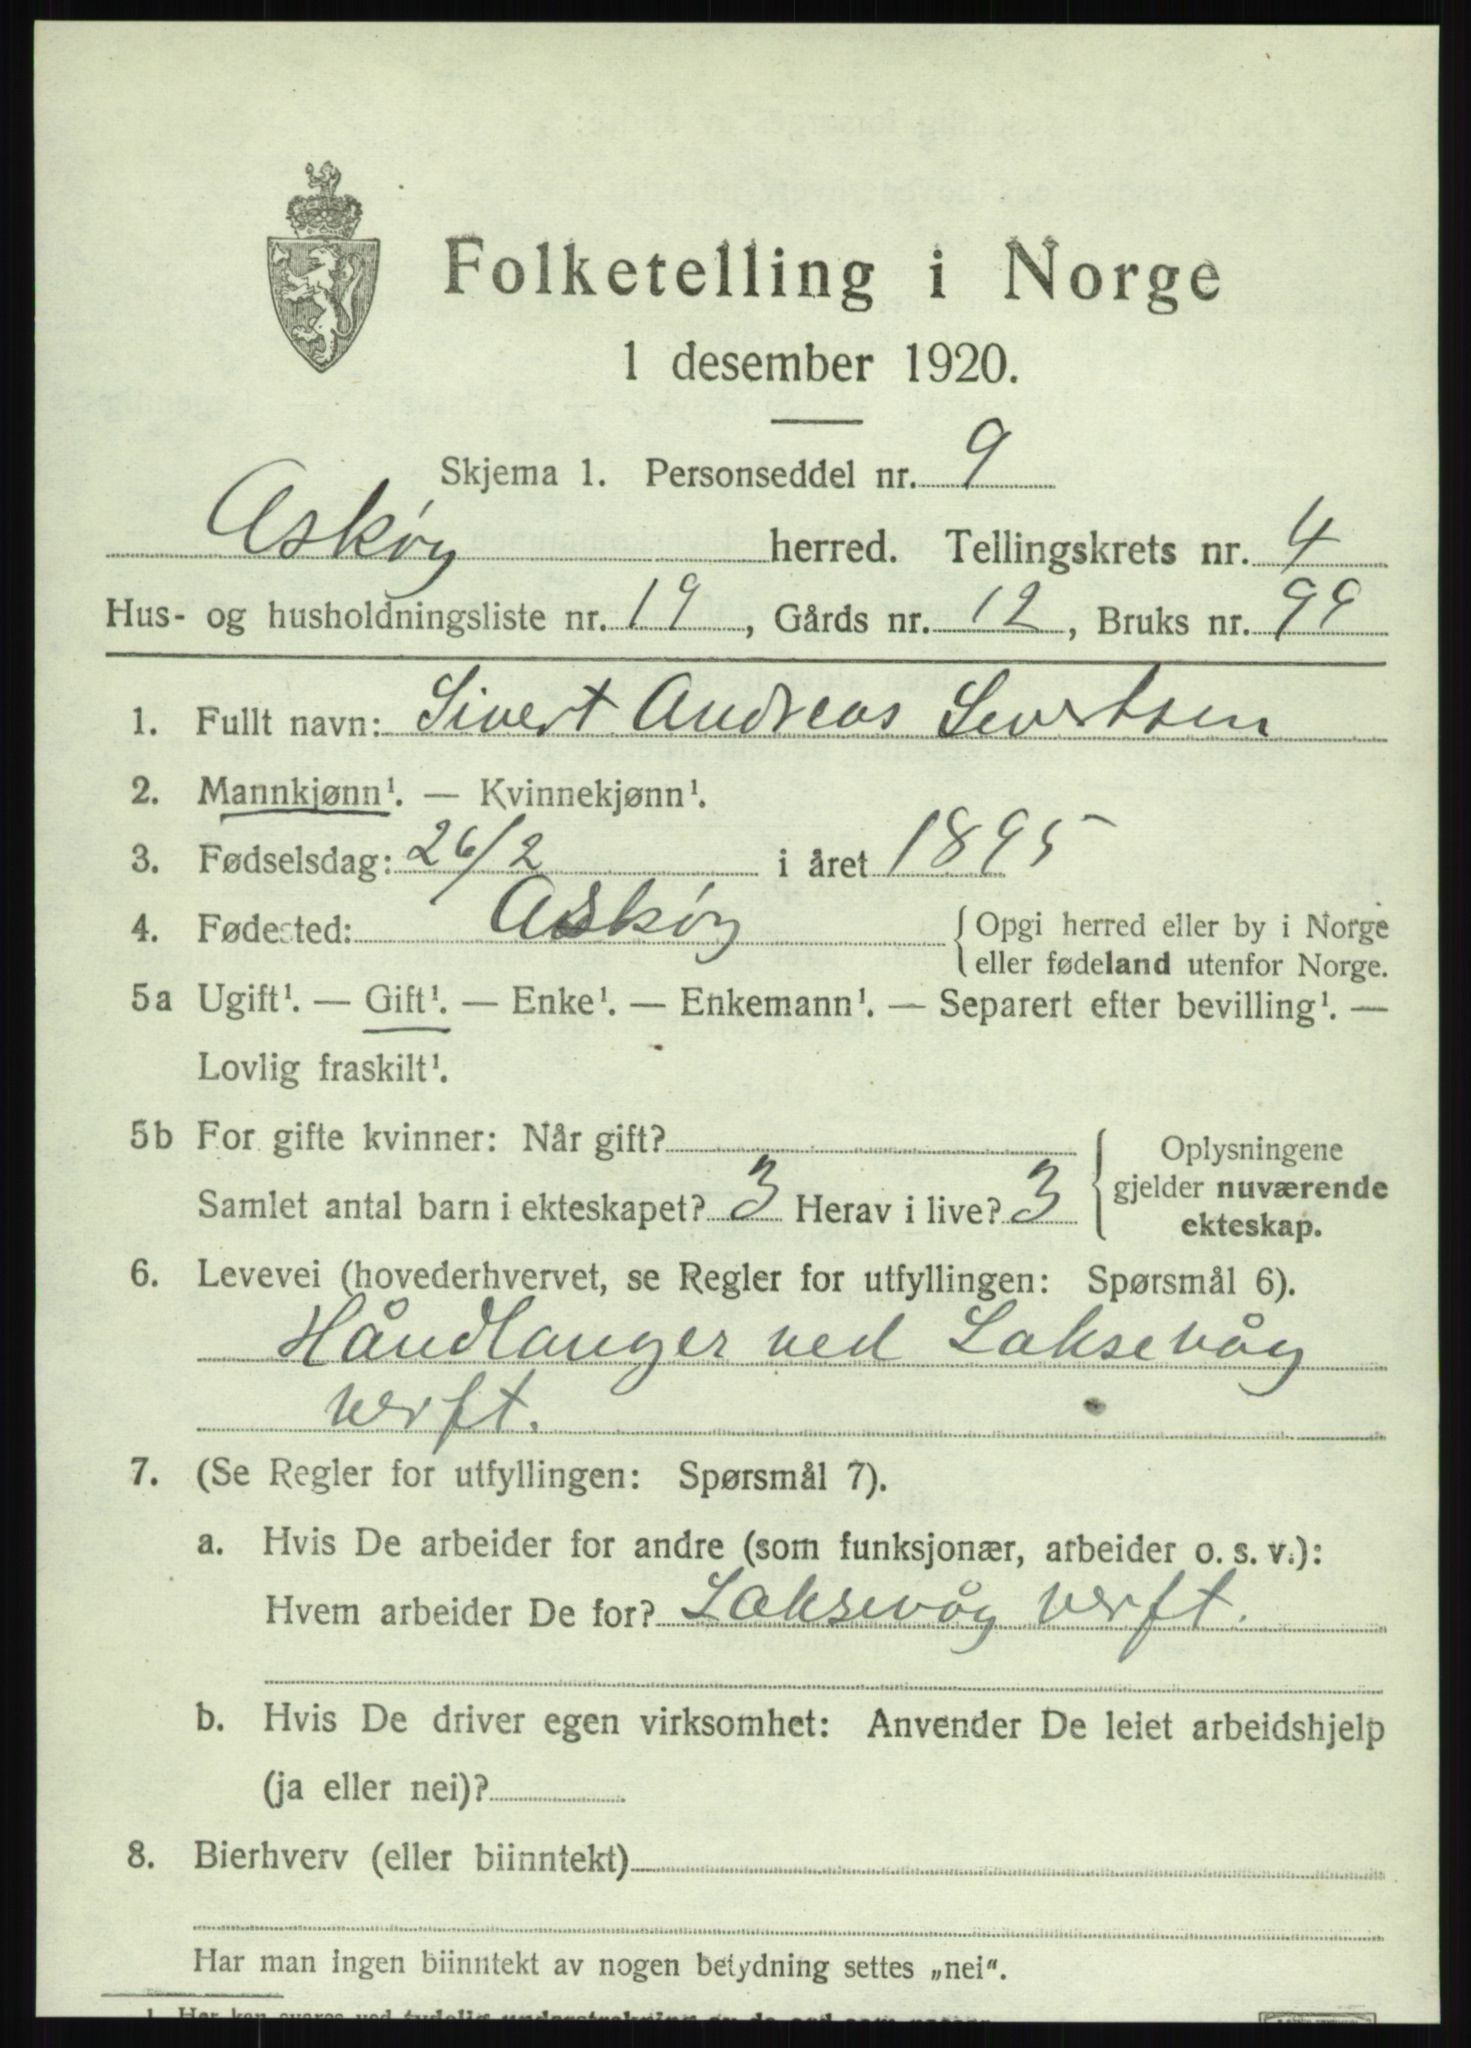 Folketelling i Norge
1 desember 1920.
Skjema 1. Personseddel nr. 9
Askøy herred. Tellingskrets nr. 4
Hus- og husholdningsliste nr. 19, Gårds nr. 12, Bruks nr. 99
1. Fullt navn: Sivert Andreas Sivertsen
2. Mannkjønn¹. — Kvinnekjønn¹.
3. Fødselsdag: 26/2 i året 1895
4. Fødested: Askøy {Opgi herred eller by i Norge
eller fødeland utenfor Norge.
5a Ugift¹. — Gift¹. — Enke¹. — Enkemann¹. — Separert efter bevilling¹. —
Lovlig fraskilt¹.
5b For gifte kvinner: Når gift? Oplysningene
gjelder nuværende
Samlet antal barn i ekteskapet? 3 Herav i live? 3 ekteskap.
6. Levevei (hovederhvervet, se Regler for utfyllingen: Spørsmål 6).
Håndlanger ved Laksevåg
verft.
7. (Se Regler for utfyllingen: Spørsmål 7).
a. Hvis De arbeider for andre (som funksjonær, arbeider o. s. v.):
Hvem arbeider De for? Laksevåg verft.
b. Hvis De driver egen virksomhet: Anvender De leiet arbeidshjelp
(ja eller nei)?
8. Bierhverv (eller biinntekt)
Har man ingen biinntekt av nogen betydning settes „nei“.